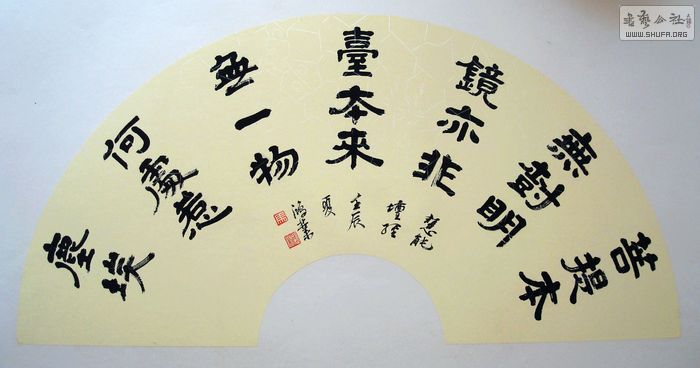 菩提本
無樹明
鏡亦非
臺本來
無一物
何處惹
塵埃
慧能
壇經
壬辰
夏
鴻業
书艺公社
WWW.SHUFA.ORG